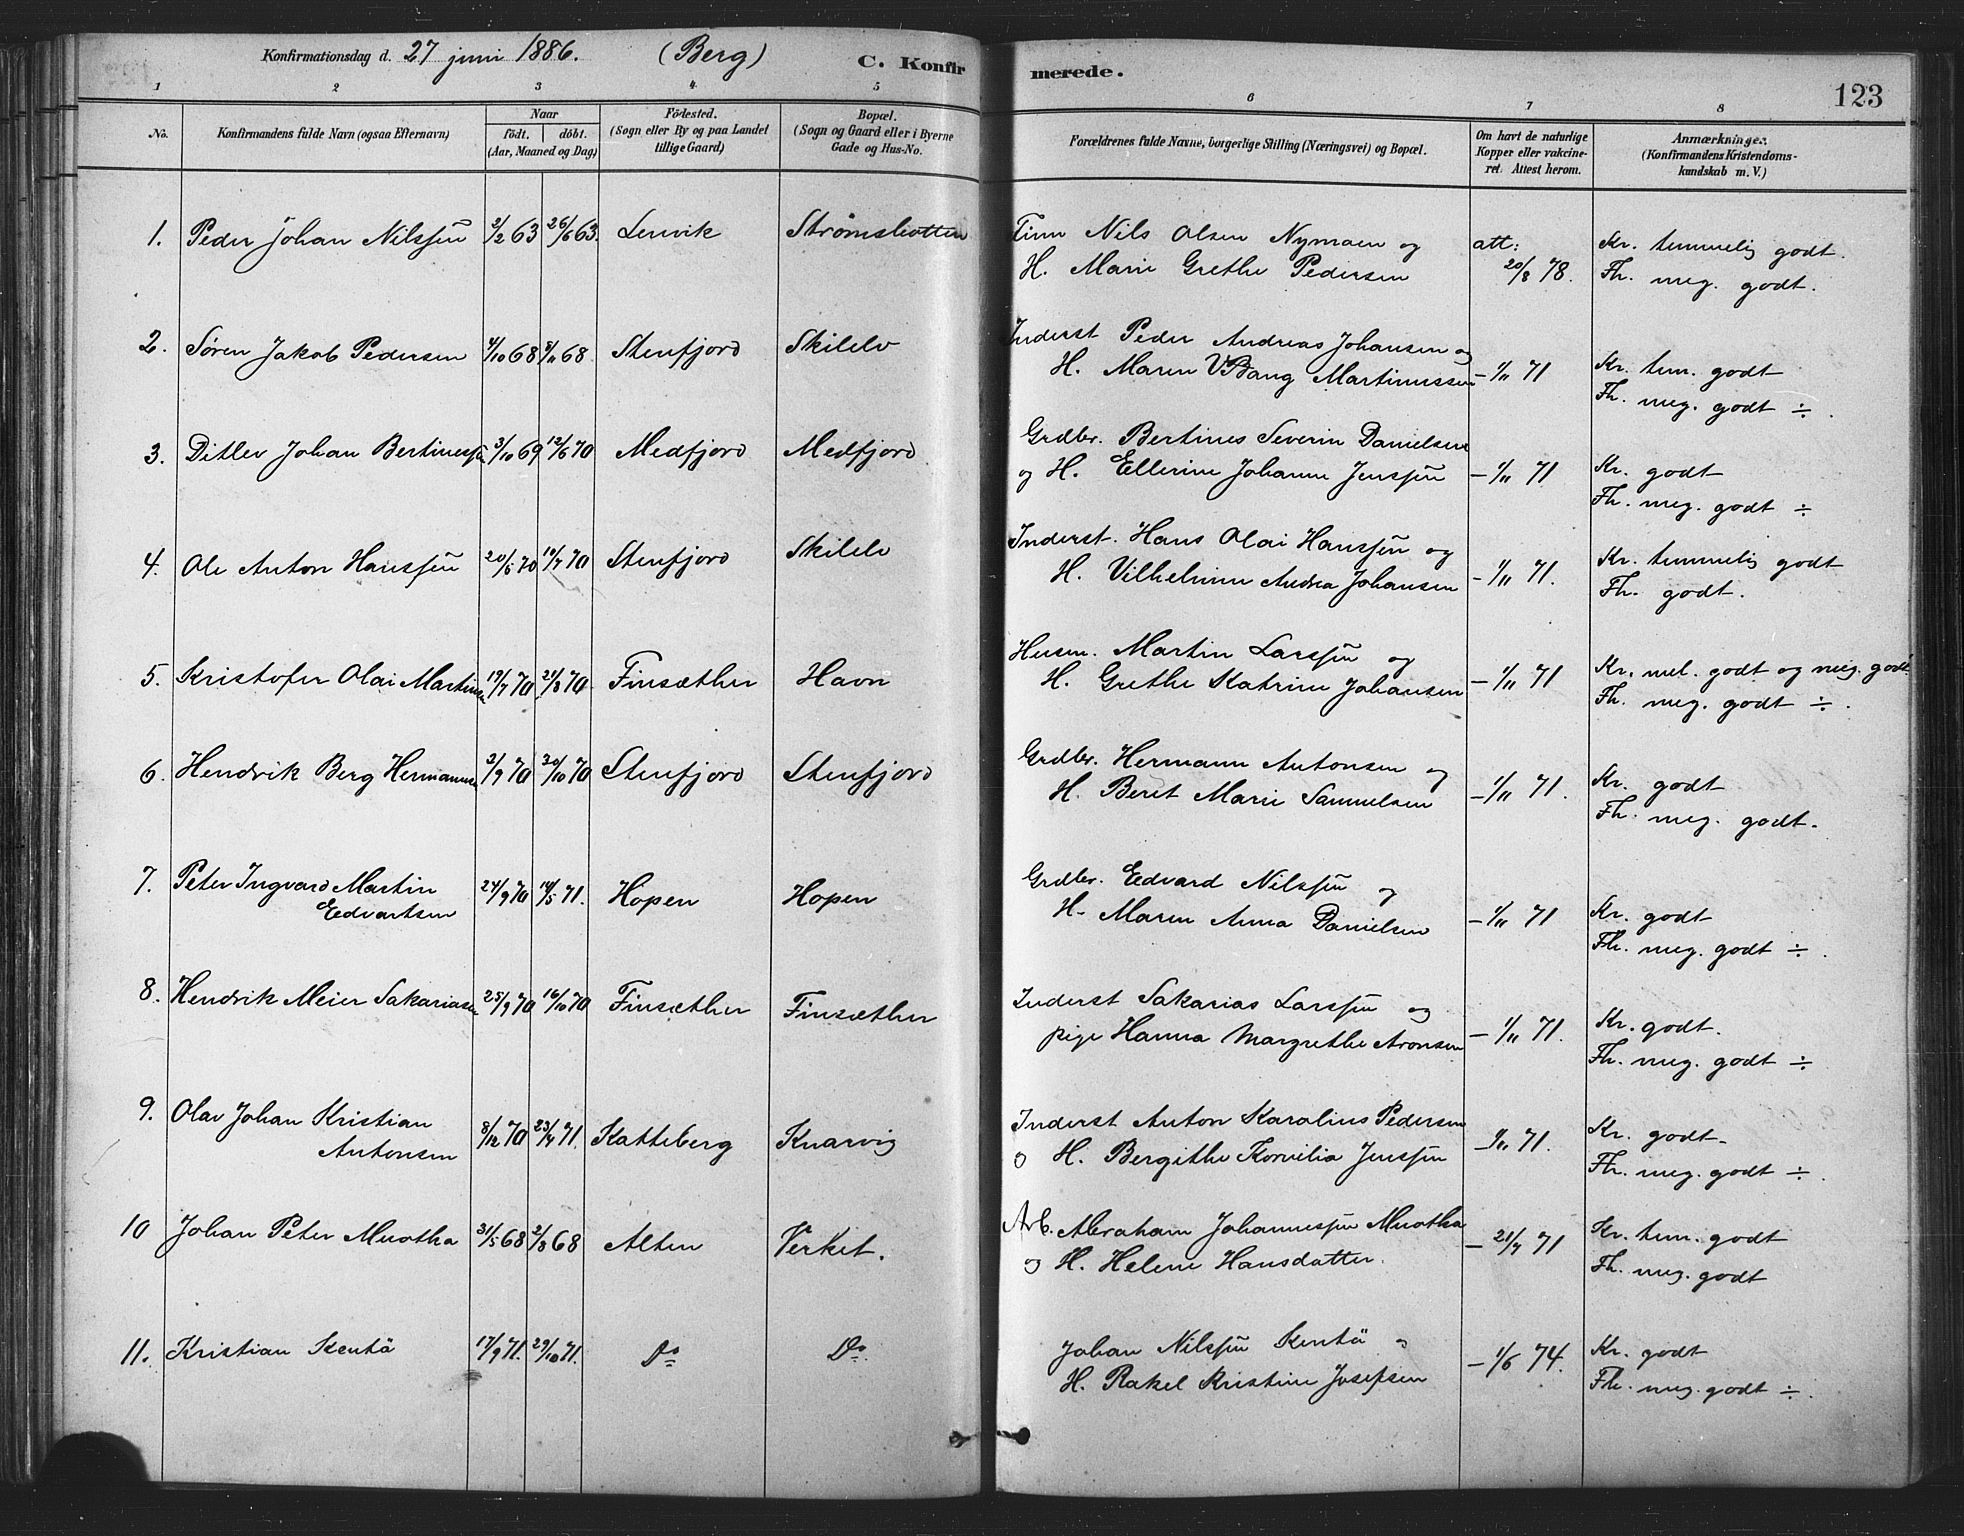 Konfirmationsdag d. 27 juni 1886. (Berg) C. Konfirmerede. 123
1 2 3 4 5 6 7 8
No. Konfirmandens fulde Navn (ogsaa Efternavn) Naar født. døbt. (Aar, Maaned og Dag) Fødested. (Sogn eller By og paa Landet tillige Gaard) Bopæl. (Sogn og Gaard eller i Byerne Gade og Hus-No. Forældrenes fulde Navne, borgerlige Stilling (Næringsvei) og Bopæl. Om havt de naturlige Kopper eller vakcineret. Attest herom. Anmærkninger. (Konfirmandens Kristendomskundskab m. V.)
1. Peder Johan Nilssen 2/2 63 26/6 63. Lenvik Strømsbotten Finn Nils Olsen Nymoen og att: Kr. temmelig godt.
H. Marie Grethe Pedersen 20/8 78. Fh. meg. godt.
2. Søren Jakob Pedersen 4/10 68 8/11 68. Stenfjord Skilelv Inderst Peder Andreas Johansen og Kr. tem. godt
H. Maren Martinussen – 1/11 71 Fh. meg. godt ÷.
3. Ditlev Johan Bertinessen 3/10 69 12/6 70 Medfjord Medfjord Grdbr. Bertines Severin Danielsen Kr. godt
og H. Ellerine Johanne Jenssen – 1/11 71. Fh. meg. godt ÷
4. Ole Anton Hanssen 20/5 70 10/7 70 Stenfjord Skilelv Inderst. Hans Olai Hanssen og Kr. temmelig godt
H. Vilhelmine Andrea Johansen – 1/11 71. Fh. godt.
5. Kristofer Olai Martinsen 19/7 70 21/8 70 Finsæther Havn Husm. Martin Larssen og Kr. mel. godt og meg. godt.
H. Grethe Katrine Johansen – 1/11 71 Fh. meg. godt ÷.
6. Hendrik Berg Hermansen 2/9 70 30/10 70 Stenfjord Stenfjord Grdbr. Hermann Antonsen og Kr. godt
H. Beret Marie Samuelsen – 1/11 71. Fh. meg. godt.
7. Peter Ingvard Martin 24/9 70 14/5 71. Hopen Hopen Grdbr. Edvard Nilssen og Kr. godt
Edvartsen H. Maren Anna Danielsen – 1/11 71 Fh. meg. godt ÷.
8. Hendrik Meier Sakariasen 25/9 70 16/10 70 Finsæther Finsæther Inderst Sakarias Larssen og Kr. godt.
pige Hanna Margrethe Aronsen – 1/11 71. Fh. meg. godt ÷
9. Olav Johan Kristian 8/12 70 23/4 71. Katteberg Knarvig Inderst Anton Karolius Pedersen Kr. godt.
Antonsen og H. Bergithe Kornelia Jenssen – 1/11 71. Fh. meg. godt ÷.
10 Johan Peter Muotka 31/5 68 2/8 68 Alten Verket. Arb. Abraham Johannessen Muotka Kr. tem. godt
og H. Helene Hansdatter. – 21/7 71 Fh. meg. godt
11. Kristian Kentä 17/9 71. 29/10 71. Do Do. Johan Nilssen Kentä og Kr. godt
H. Rakel Kristine Josefsen – 1/6 74. Fh. meg. godt ÷.